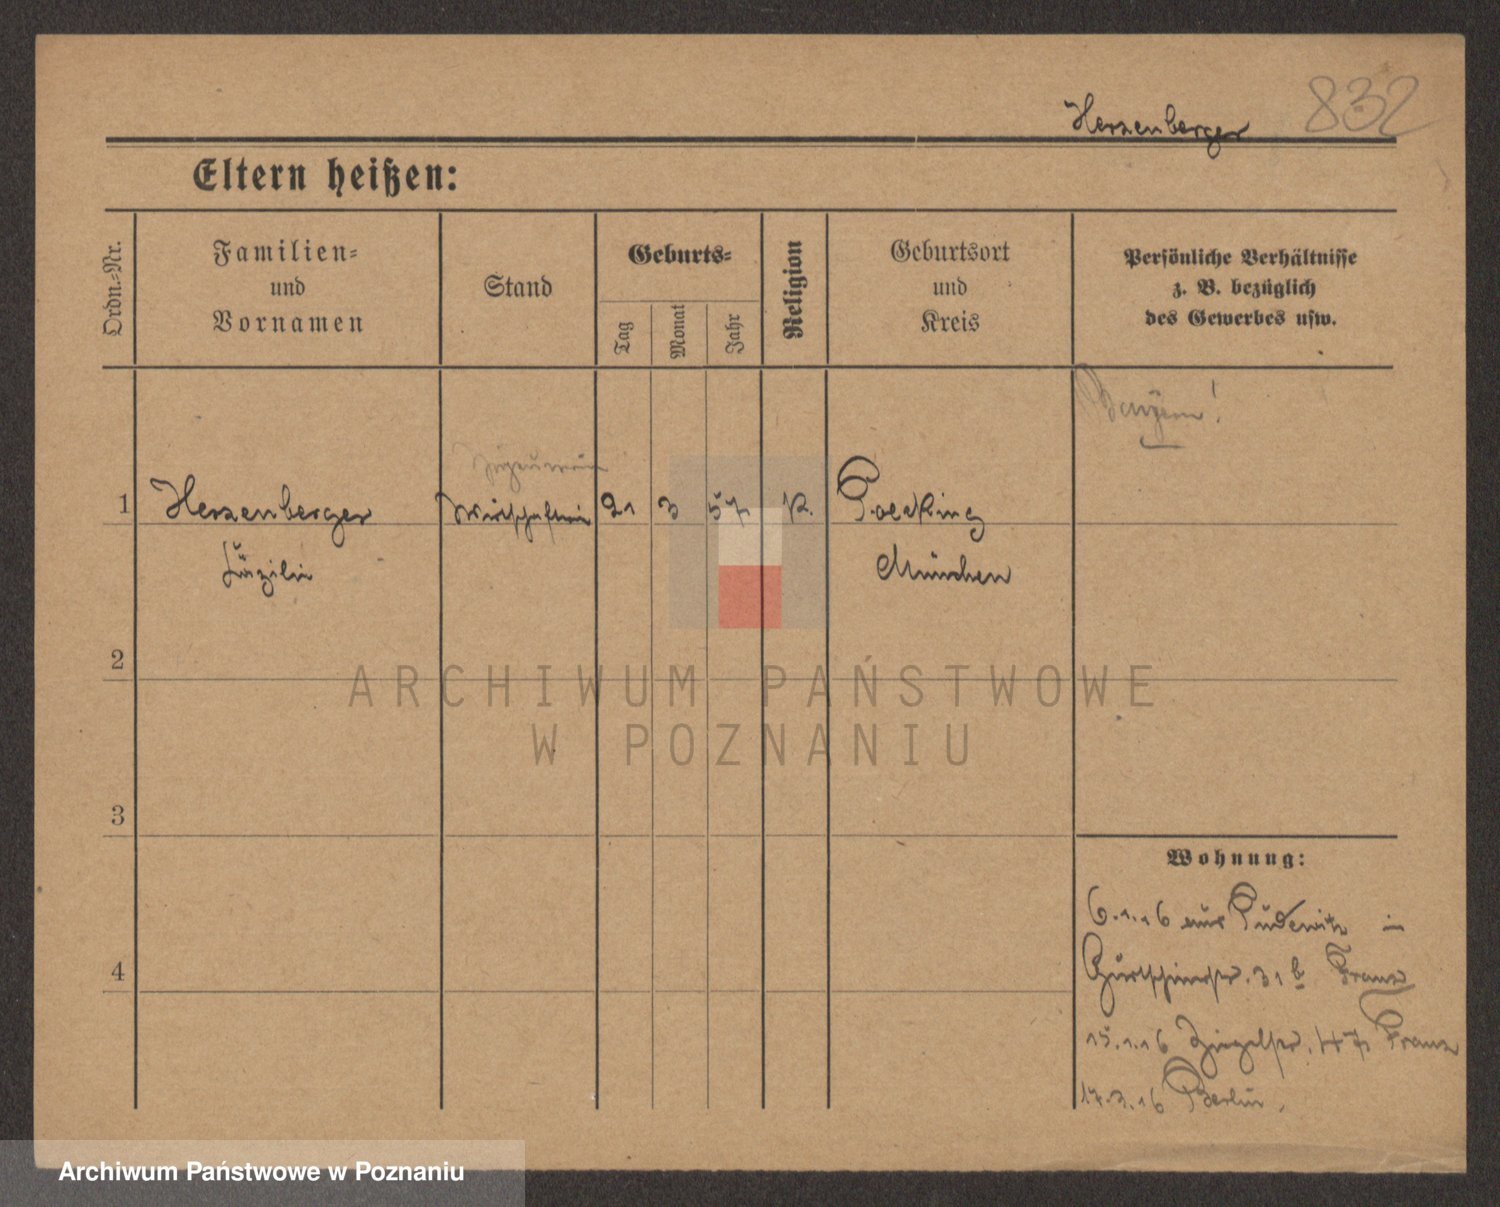 Herzenberger 832
Eltern heißen:
Ordn.-Nr.
Familien-
und
Vornamen
Stand
Geburts-
Tag
Monat
Jahr
Religion
Geburtsort
und
Kreis
Persönliche Verhältnisse
z. B. bezüglich
des Gewerbes usw.
Bayern!
1 Herzenberger Wirtschafterin 21 3 57 K. Poecking
München
2
3
4
ARCHIWUM PAŃSTWOWE
W POZNANIU
Wohnung:
6.1.16 aus Pudewitz in
31b Franz
15.1.16 Ziegelstr. 47 Franz
17.3.16 Berlin.
Archiwum Państwowe w Poznaniu